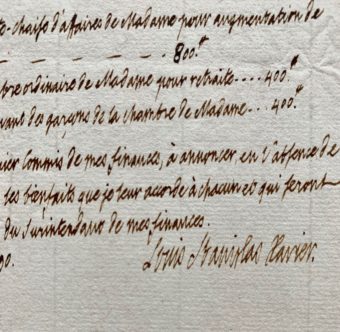 te-chaise d'affaires de Madame pour augmentation de
800.tt
bre ordinaire de Madame pour retraite .... 400.tt
vant des garçons de la chambre de Madame ... 400.tt
ier Commis de mes finances, à annoncer en l'absence de
les bienfaits que je leur accorde à chacun et qui seront
du Surintendant de mes finances.
90.
Louis Stanislas Xavier.